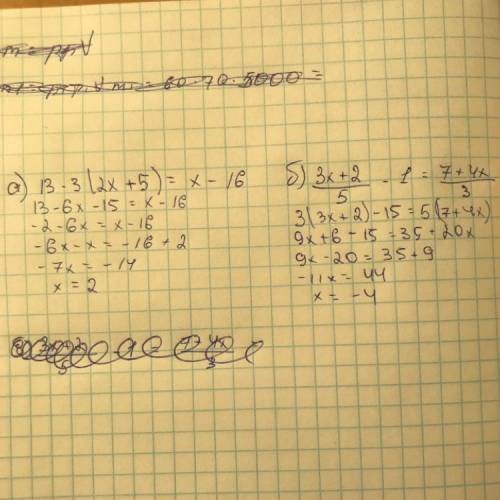 m = ρ V
а) 13 - 3(2x + 5) = x - 16
13 - 6x - 15 = x - 16
-2 - 6x = x - 16
-6x - x = -16 + 2
-7x = -14
x = 2
б) (3x + 2)/5 - 1 = (7 + 4x)/3
3(3x + 2) - 15 = 5(7 + 4x)
9x + 6 - 15 = 35 - 20x
9x - 20 = 35 + 9
-11x = 44
x = -4